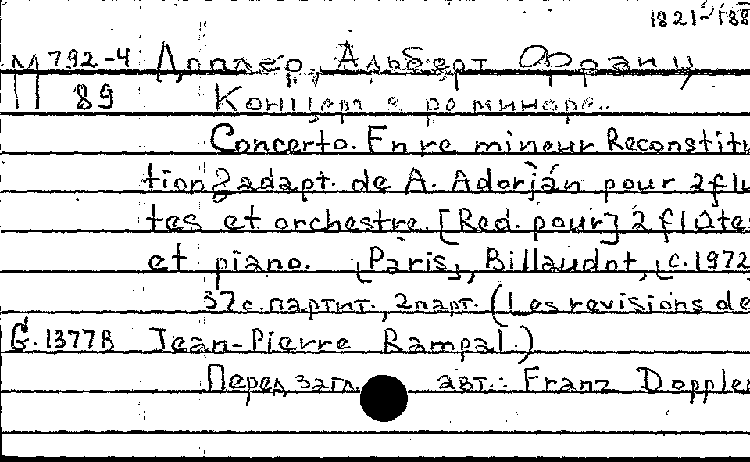 1821-188
М 792-4 Допплер, Альберт Франц
89 Концерт ре минорe.
Concerto. En re mineur Reconstitu
tion & adapt. de A. Adorján pour 2 flu
tes et orchestre. [Red. pour] 2 flûtes
et piano. [Paris], Billaudot, [c. 1972
37 с. партит., 2 парт. (Les revisions de
G. 1377 B Jean-Pierre Rampal.)
Перед загл. авт.: Franz Doppler